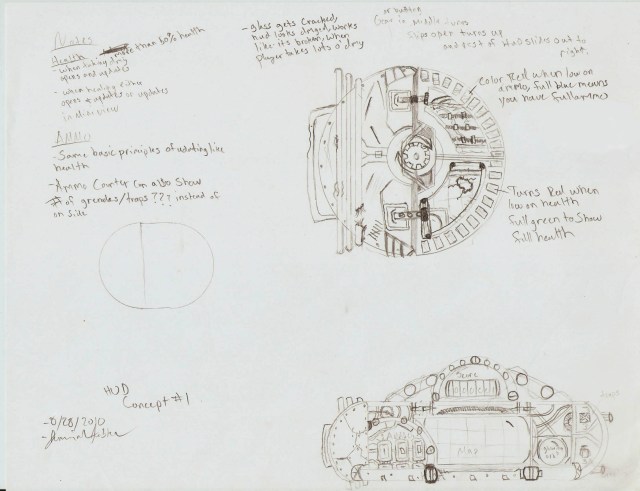 Notes
Health
more than 60% health
- when taking dmg
opens and updates
- when healing either
opens & updates or updates
in mini view
Ammo
- Same basic principles of updating like
health
- Ammo Counter can also show
# of grenades/traps ??? instead of
on side
- glass gets cracked,
hud looks dmged, works
like it's broken, when
player takes lots o' dmg
or button
Gear in middle turns
flips open turns up
and rest of HUD slides out to
right.
Color Red when low on
ammo, full blue means
you have full ammo
- Turns Red when
low on health
full green to show
full health
HUD
Concept #1
- 8/28/2010
Score
MAP